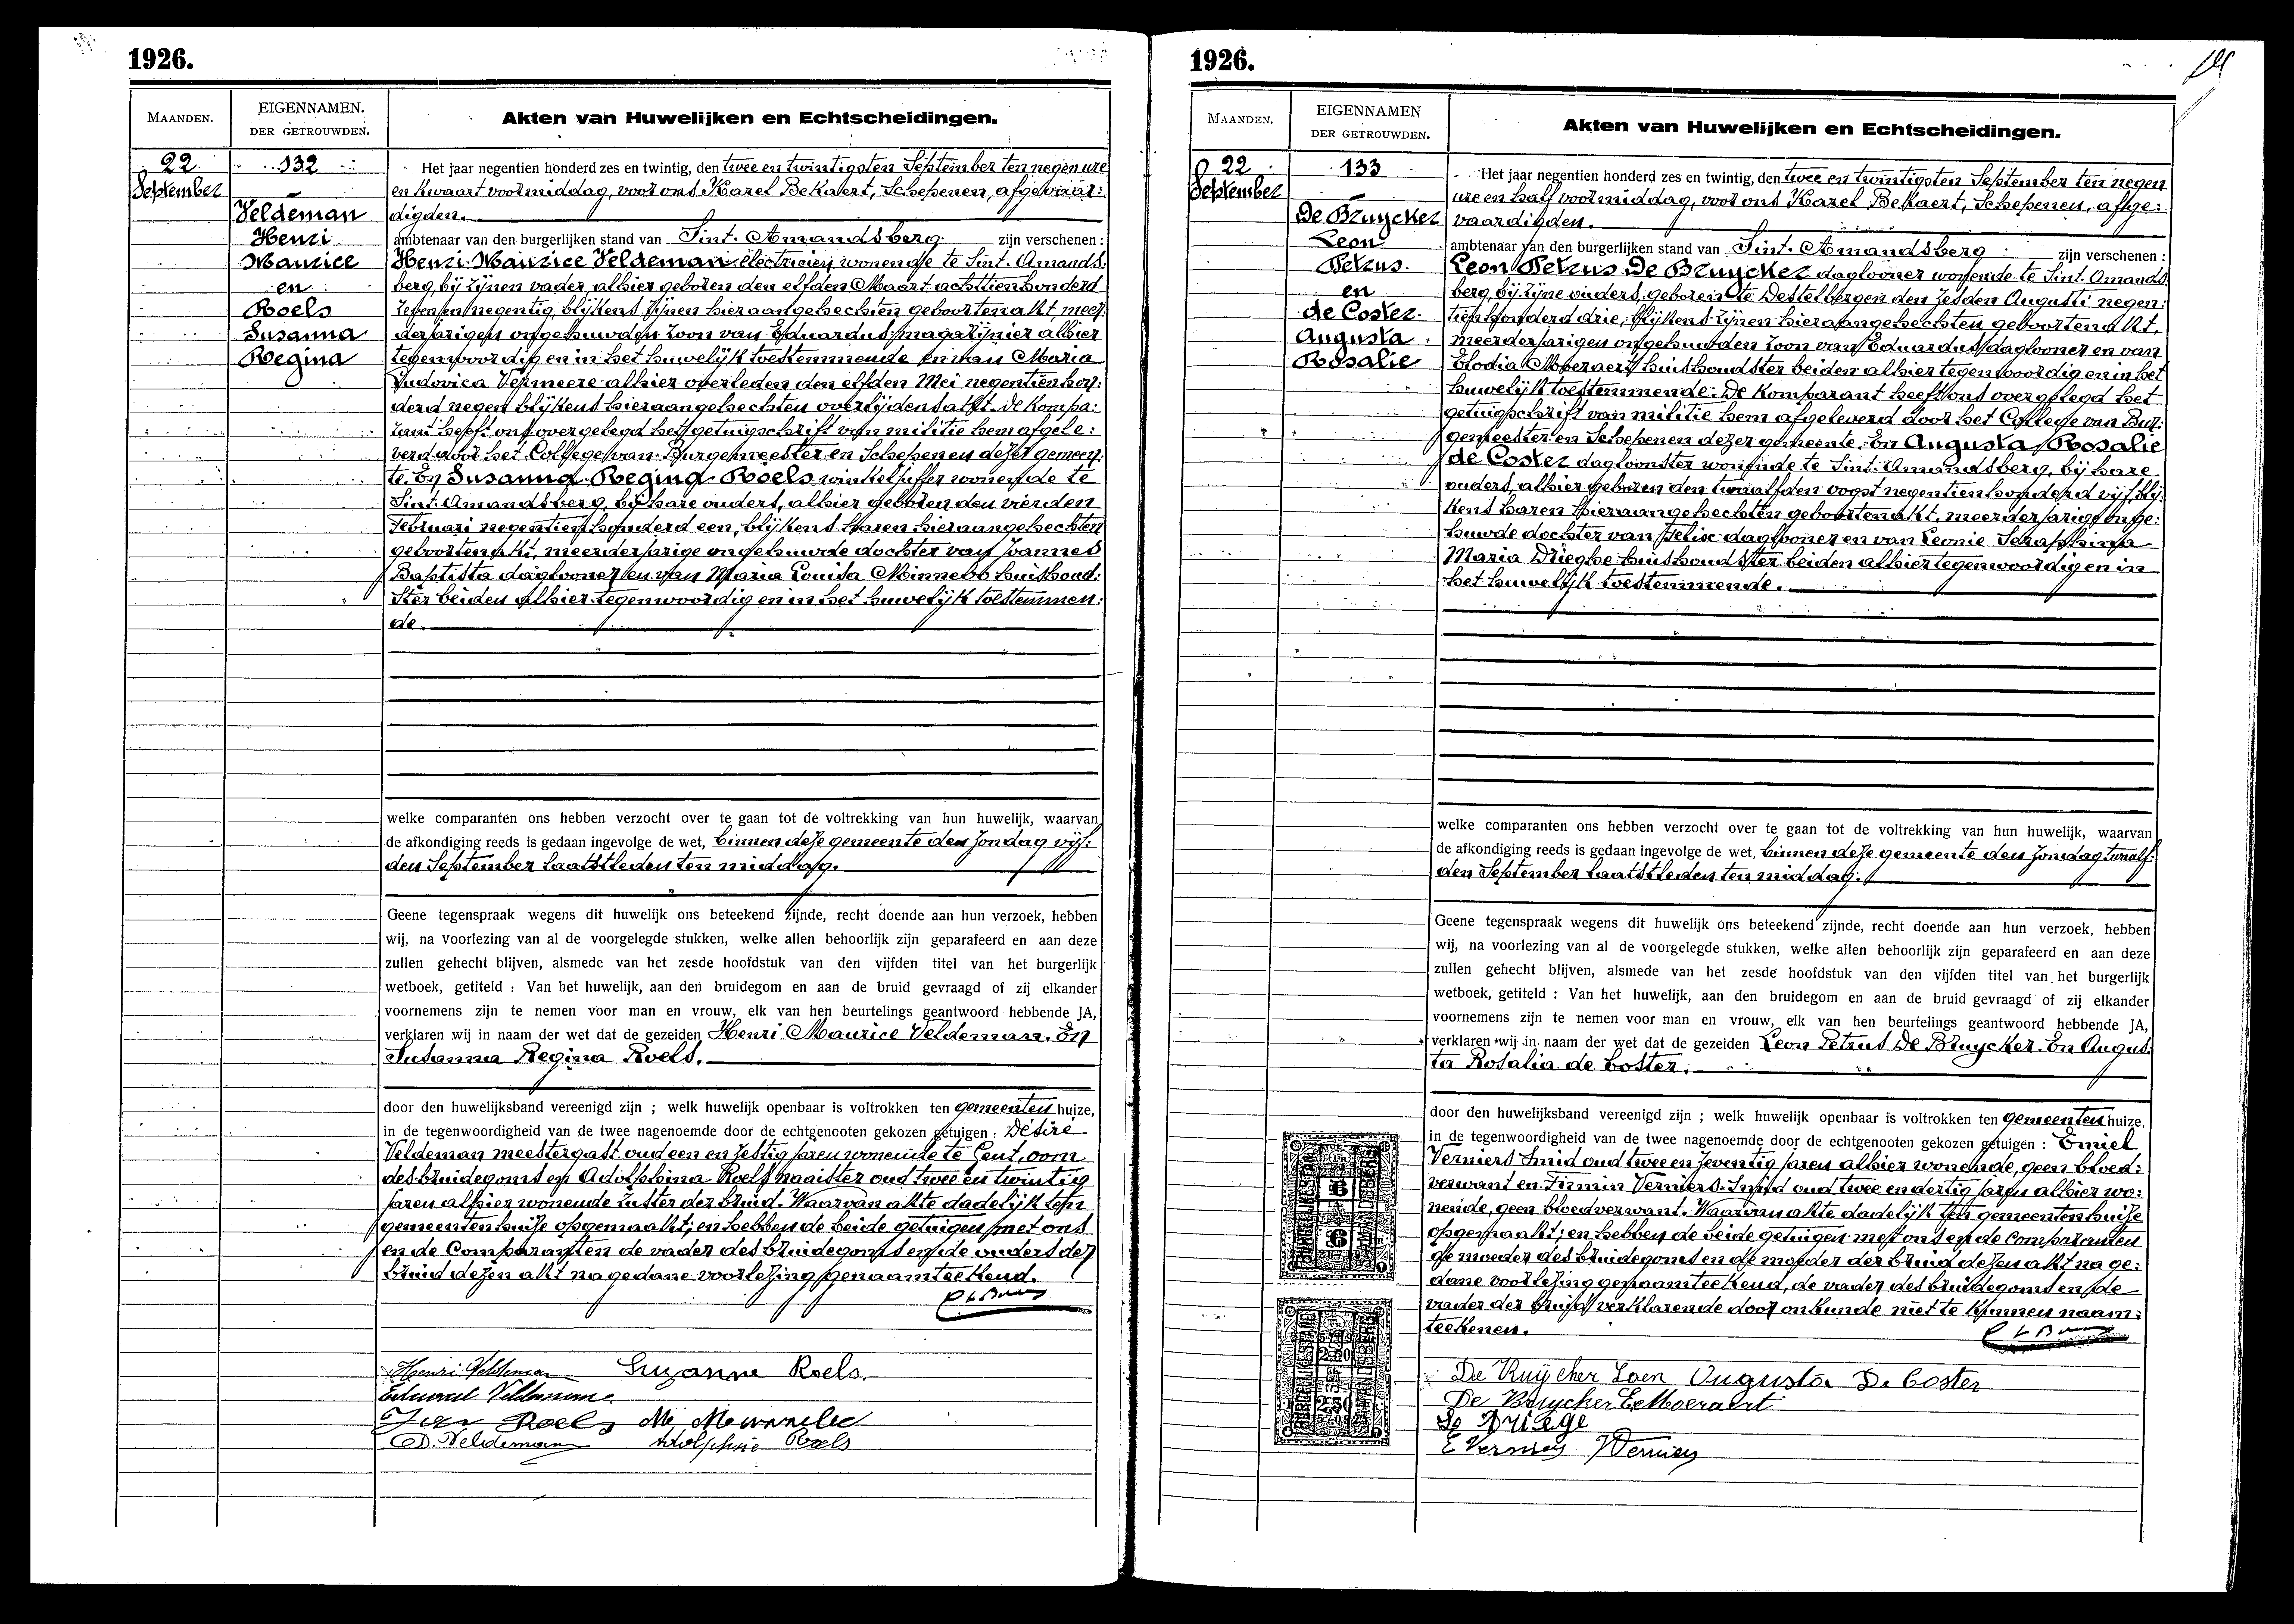 1926.
MAANDEN.
EIGENNAMEN.
DER GETROUWDEN.
Akten van Huwelijken en Echtscheidingen.
22
September
132
Veldeman
Henri
Maurice
en
Roels
Susanna
Regina
Het jaar negentien honderd zes en twintig, den twee en twintigsten September ten negen ure
en kwaart voormiddag, voor ons Karel Bekaert, Schepenen, afgevaar:
digden.
ambtenaar van den burgerlijken stand van Sint-Amandsberg zijn verschenen :
Henri Maurice Veldeman electricien, wonende te Sint-Amands
berg, bij zijnen vader, alhier geboren den elfden Maart achttien honderd
zeven en negentig, blijkens zijnen hieraangehechten geboortenakt, meer:
derjarigen ongehuwden zoon van Eduardus, magazijnier alhier
tegenwoordig en in het huwelijk toestemmende en van Maria
Ludovica Vermeere alhier overleden den elfden Mei negentien hon:
derd negen blijkens hieraangehechten overlijdensakt. De kompa:
rant heeft ons overgelegd het getuigschrift van militie hem afgele:
verd door het College van Burgemeester en Schepenen dezer gemeen:
te. En Susanna Regina Roels winkeljuffer wonende te
Sint-Amandsberg, bij hare ouders, alhier geboren den vierden
Februari negentien honderd een, blijkens haren hieraangehechten
geboortenakt, meerderjarige ongehuwde dochter van Joannes
Baptista daglooner en van Maria Louisa Minnebo huishoud:
ster beiden alhier tegenwoordig en in het huwelijk toestemmen:
de.
welke comparanten ons hebben verzocht over te gaan tot de voltrekking van hun huwelijk, waarvan
de afkondiging reeds is gedaan ingevolge de wet, binnen deze gemeente den Zondag vijf:
den September laatstleden ten middag.
Geene tegenspraak wegens dit huwelijk ons beteekend zijnde, recht doende aan hun verzoek, hebben
wij, na voorlezing van al de voorgelegde stukken, welke allen behoorlijk zijn geparafeerd en aan deze
zullen gehecht blijven, alsmede van het zesde hoofdstuk van den vijfden titel van het burgerlijk
wetboek, getiteld : Van het huwelijk, aan den bruidegom en aan de bruid gevraagd of zij elkander
voornemens zijn te nemen voor man en vrouw, elk van hen beurtelings geantwoord hebbende JA,
verklaren wij in naam der wet dat de gezeiden Henri Maurice Veldeman. En
Susanna Regina Roels.
door den huwelijksband vereenigd zijn ; welk huwelijk openbaar is voltrokken ten gemeenten huize,
in de tegenwoordigheid van de twee nagenoemde door de echtgenooten gekozen getuigen : Désiré
Veldeman meestergast oud een en zestig jaren wonende te Gent, oom
des bruidegoms en Adolphina Roels naaister oud twee en twintig
jaren alhier wonende zuster der bruid. Waarvan akte dadelijk ten
gemeentenhuize opgemaakt; en hebben de beide getuigen met ons
en de Comparanten de vader des bruidegoms en de ouders der
bruid dezen akt na gedane voorlezing genaamteekend.
Henri Veldeman Suzanne Roels.
Eduard Veldeman
Jean Roels
D. Veldeman Adolphine Roels
1926.
MAANDEN.
EIGENNAMEN
DER GETROUWDEN.
Akten van Huwelijken en Echtscheidingen.
22
September
133
De Bruycker
Leon
Petrus
en
de Coster
Augusta
Rosalie
Het jaar negentien honderd zes en twintig, den twee en twintigsten September ten negen
ure en half voormiddag, voor ons Karel Bekaert, Schepenen, afge:
vaardigden.
ambtenaar van den burgerlijken stand van Sint-Amandsberg zijn verschenen :
Leon Petrus De Bruycker daglooner wonende te Sint-Amands
berg, bij zijne ouders, geboren te Destelbergen den zesden Augusti negen:
tien honderd drie, blijkens zijnen hieraangehechten geboortenakt,
meerderjarigen ongehuwden zoon van Eduardus, daglooner en van
Elodia Moeraert huishoudster beiden alhier tegenwoordig en in het
huwelijk toestemmende. De Komparant heeft ons overgelegd het
getuigschrift van militie hem afgeleverd door het College van Bur:
gemeester en Schepenen dezer gemeente. En Augusta Rosalie
de Coster dagloonster wonende te Sint-Amandsberg, bij hare
ouders, alhier geboren den twaalfden oogst negentien honderd vijf, blij:
kens haren hieraangehechten geboortenakt, meerderjarige onge:
huwde dochter van Felix daglooner en van Leonie Seraphina
Maria Drieghe huishoudster beiden alhier tegenwoordig en in
het huwelijk toestemmende.
welke comparanten ons hebben verzocht over te gaan tot de voltrekking van hun huwelijk, waarvan
de afkondiging reeds is gedaan ingevolge de wet, binnen deze gemeente den Zondag twaalf:
den September laatstleden ten middag.
Geene tegenspraak wegens dit huwelijk ons beteekend zijnde, recht doende aan hun verzoek, hebben
wij, na voorlezing van al de voorgelegde stukken, welke allen behoorlijk zijn geparafeerd en aan deze
zullen gehecht blijven, alsmede van het zesde hoofdstuk van den vijfden titel van het burgerlijk
wetboek, getiteld : Van het huwelijk, aan den bruidegom en aan de bruid gevraagd of zij elkander
voornemens zijn te nemen voor man en vrouw, elk van hen beurtelings geantwoord hebbende JA,
verklaren wij in naam der wet dat de gezeiden Leon Petrus De Bruycker. En Augus:
ta Rosalia de Coster.
door den huwelijksband vereenigd zijn ; welk huwelijk openbaar is voltrokken ten gemeenten huize,
in de tegenwoordigheid van de twee nagenoemde door de echtgenooten gekozen getuigen : Emiel
Verniers smid oud twee en zeventig jaren alhier wonende, geen bloed:
verwant en Firmin Verniers smid oud twee en dertig jaren alhier wo:
nende, geen bloedverwant. Waarvan akte dadelijk ten gemeentenhuize
opgemaakt; en hebben de beide getuigen met ons en de Comparanten
de moeder des bruidegoms en de moeder der bruid dezen akt na ge:
dane voorlezing genaamteekend, de vader des bruidegoms en de
vader der bruid verklarende door onkunde niet te kunnen naam:
teekenen.
De Ruijcher Loen Augusta De Coster
De Bruycker E Moeraert
E Verniers F Verniers